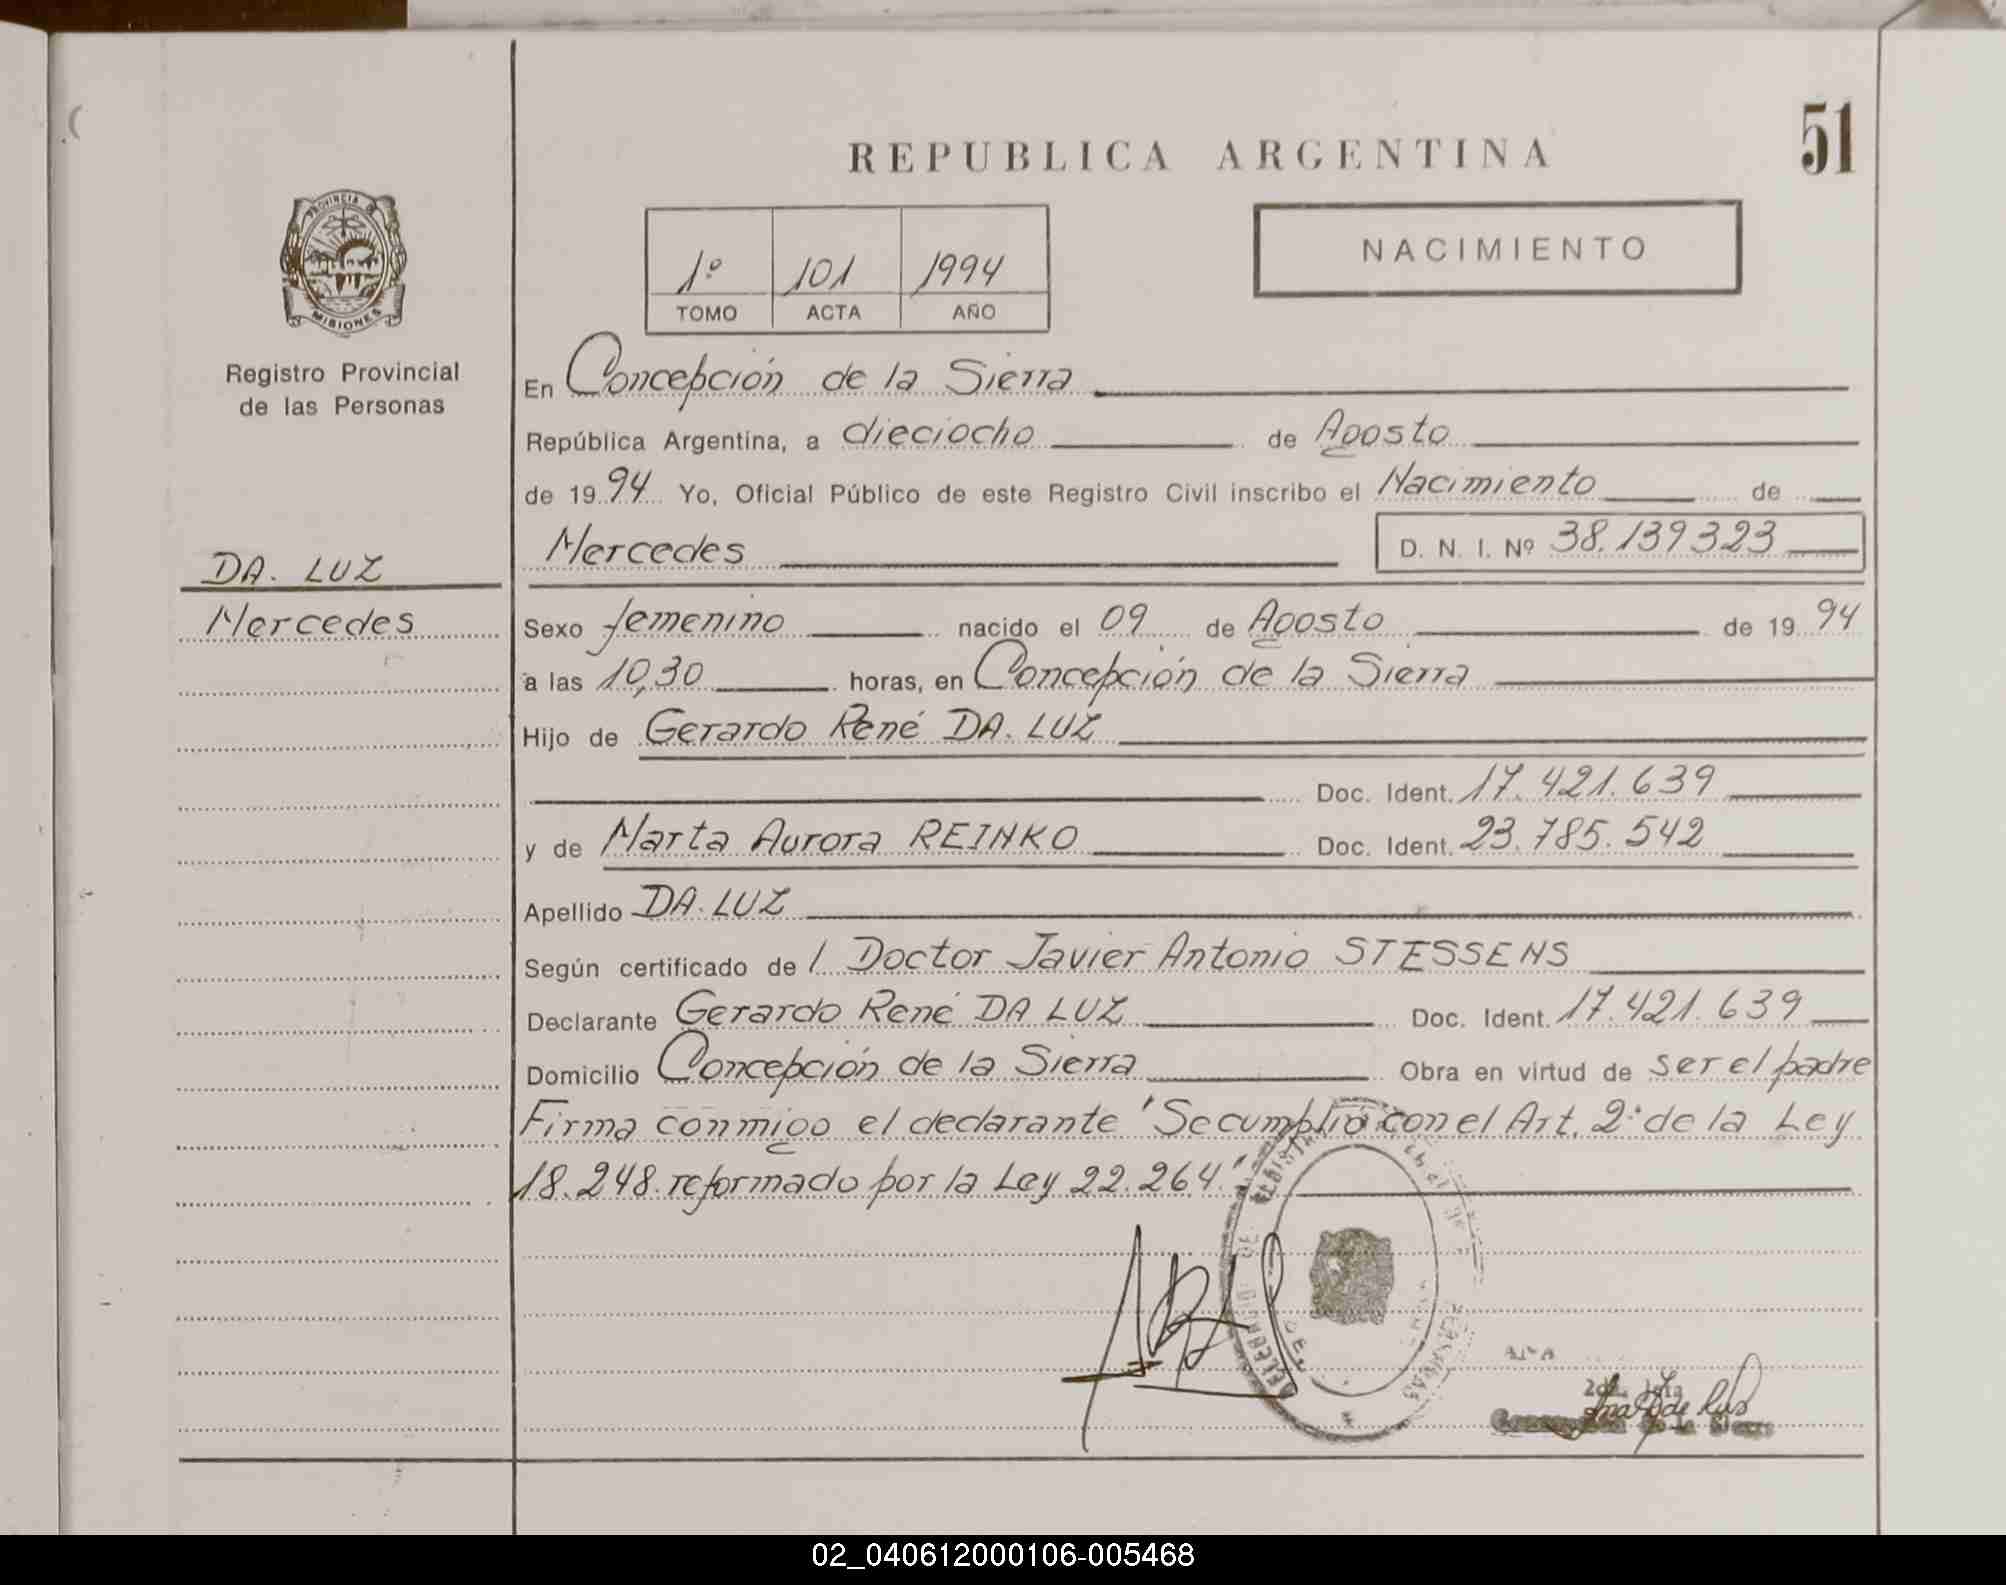 51
REPUBLICA ARGENTINA
NACIMIENTO
1º 101 1994
TOMO ACTA AÑO
PROVINCIA DE
MISIONES
Registro Provincial
de las Personas
DA. LUZ
Mercedes
En Concepción de la Sierra
República Argentina, a dieciocho de Agosto
de 1994 Yo, Oficial Público de este Registro Civil inscribo el Nacimiento de
Mercedes D. N. I. Nº 38.139323
Sexo femenino nacido el 09 de Agosto de 1994
a las 10,30 horas, en Concepción de la Sierra
Hijo de Gerardo René DA. LUZ
Doc. Ident. 17.421.639
y de Marta Aurora REINKO Doc. Ident. 23.785.542
Apellido DA. LUZ
Según certificado de l Doctor Javier Antonio STESSENS
Declarante Gerardo René DA LUZ Doc. Ident. 17.421.639
Domicilio Concepción de la Sierra Obra en virtud de ser el padre
Firma conmigo el declarante "Se cumplió con el Art. 2º de la Ley
18.248 reformado por la Ley 22.264."
02_040612000106-005468